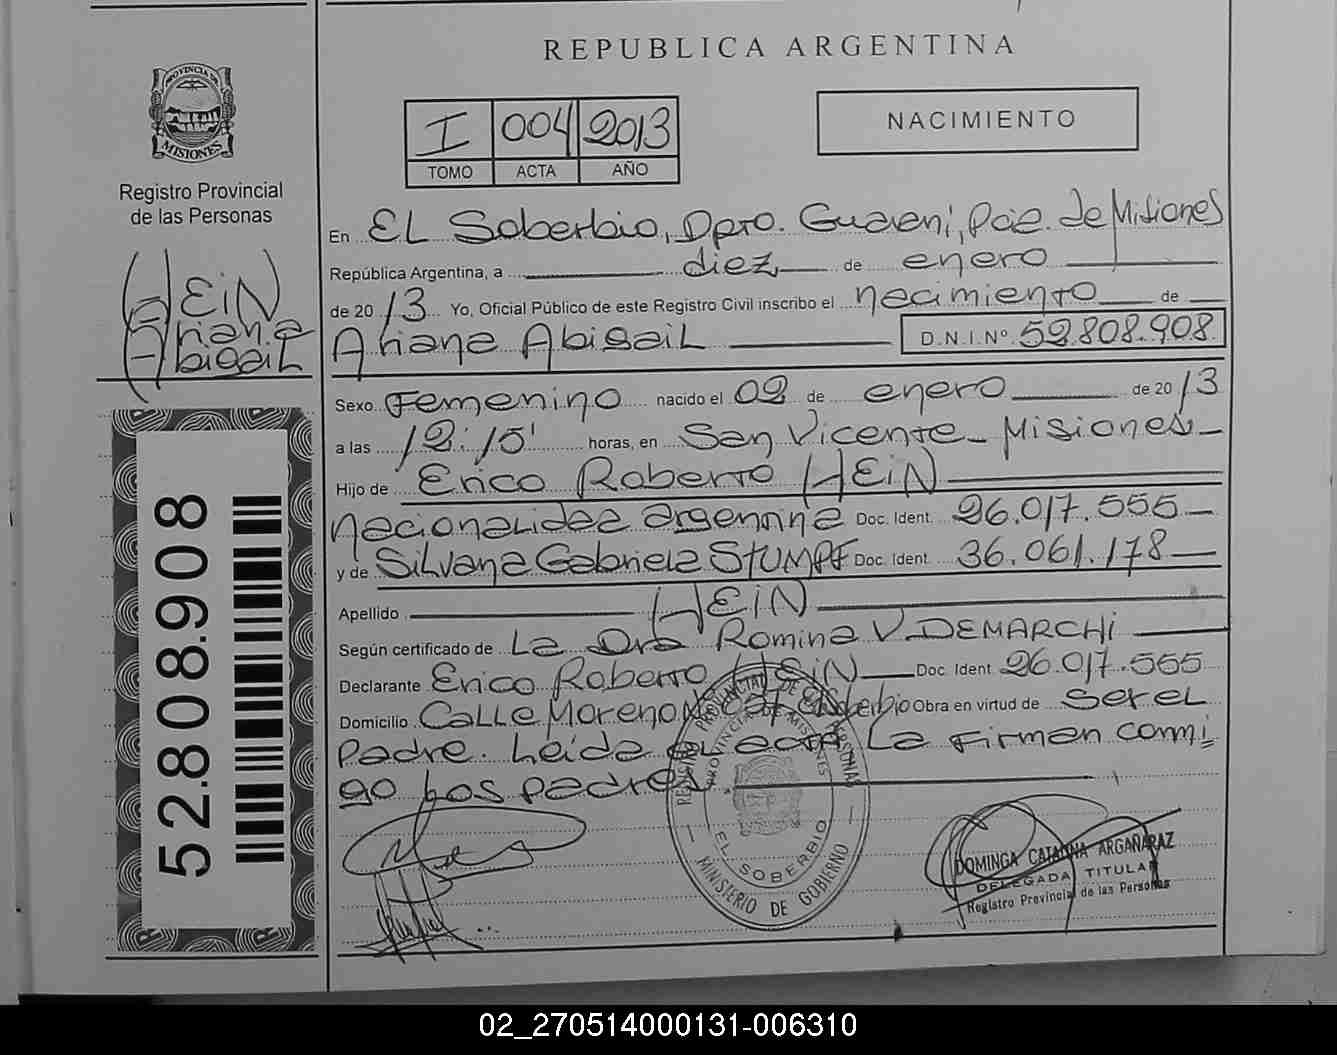 REPUBLICA ARGENTINA
PROVINCIA DE
MISIONES
Registro Provincial
de las Personas
HEiN
Ariana
Abigail
52.808.908
I 004 2013
TOMO ACTA AÑO
NACIMIENTO
En EL Soberbio, Dpto. Guarani, Pcie. de Misiones
República Argentina, a diez de enero
de 2013 Yo, Oficial Público de este Registro Civil inscribo el nacimiento de
Ariana Abigail D.N.I.Nº 52.808.908
Sexo Femenino nacido el 02 de enero de 2013
a las 12:15' horas, en San Vicente - Misiones -
Hijo de Erico Roberto HEiN
nacionalidad argentina Doc. Ident. 26.017.555 -
y de Silvana Gabriela STUMPF Doc. Ident. 36.061.178 -
Apellido HEiN
Según certificado de La Dra Romina V. DEMARCHi
Declarante Erico Roberto HEiN Doc. Ident 26.017.555
Domicilio Calle Moreno El Soberbio Obra en virtud de Ser el
padre. Leida el acta La Firman conmi
go Los padres
REGISTRO PROVINCIAL DE LAS PERSONAS
PROVINCIA DE MISIONES
EL SOBERBIO
MINISTERIO DE GOBIERNO
DOMINGA CATALINA ARGAÑARAZ
DELEGADA TITULAR
Registro Provincial de las Personas
02_270514000131-006310